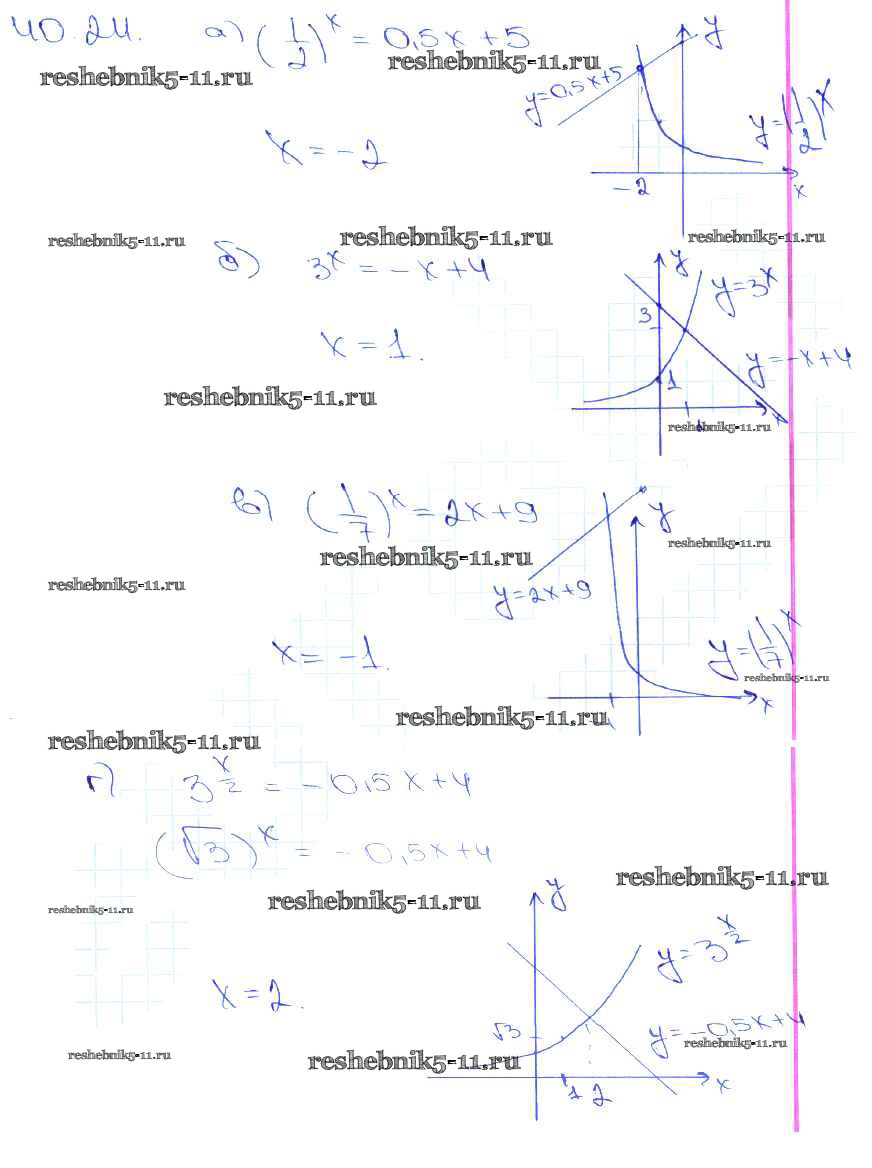 40.24. а) (1/2)^x = 0,5x + 5
reshebnik5-11.ru
reshebnik5-11.ru
y
y=0,5x+5
y=(1/2)^x
x = -2
-2
x
reshebnik5-11.ru
reshebnik5-11.ru
reshebnik5-11.ru
б) 3^x = -x + 4
y
y=3^x
3
x = 1.
y=-x+4
1
reshebnik5-11.ru
x
1
reshebnik5-11.ru
в) (1/7)^x = 2x + 9
y
reshebnik5-11.ru
reshebnik5-11.ru
reshebnik5-11.ru
y=2x+9
x = -1.
y=(1/7)^x
reshebnik5-11.ru
x
-1
reshebnik5-11.ru
reshebnik5-11.ru
г) 3^(x/2) = -0,5x + 4
(√3)^x = -0,5x+4
reshebnik5-11.ru
y
reshebnik5-11.ru
reshebnik5-11.ru
y=3^(x/2)
x = 2.
√3
y=-0,5x+4
reshebnik5-11.ru
reshebnik5-11.ru
reshebnik5-11.ru
1 2
x